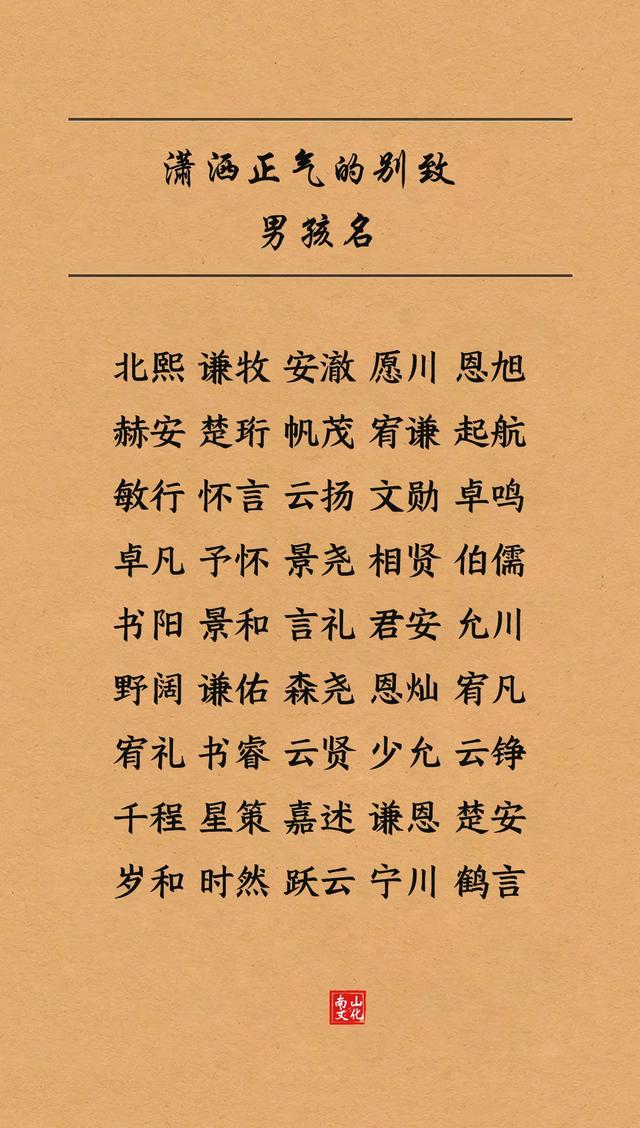 潇洒正气的别致
男孩名
北熙 谦牧 安澈 愿川 恩旭
赫安 楚珩 帆茂 宥谦 起航
敏行 怀言 云扬 文勋 卓鸣
卓凡 予怀 景尧 相贤 伯儒
书阳 景和 言礼 君安 允川
野阔 谦佑 森尧 恩灿 宥凡
宥礼 书睿 云贤 少允 云铮
千程 星策 嘉述 谦恩 楚安
岁和 时然 跃云 宁川 鹤言
南山
文化